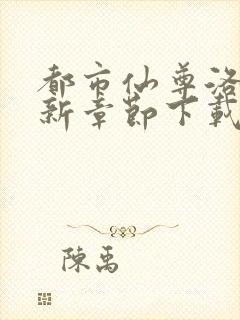 都市仙尊洛
新章節下載
陳禹